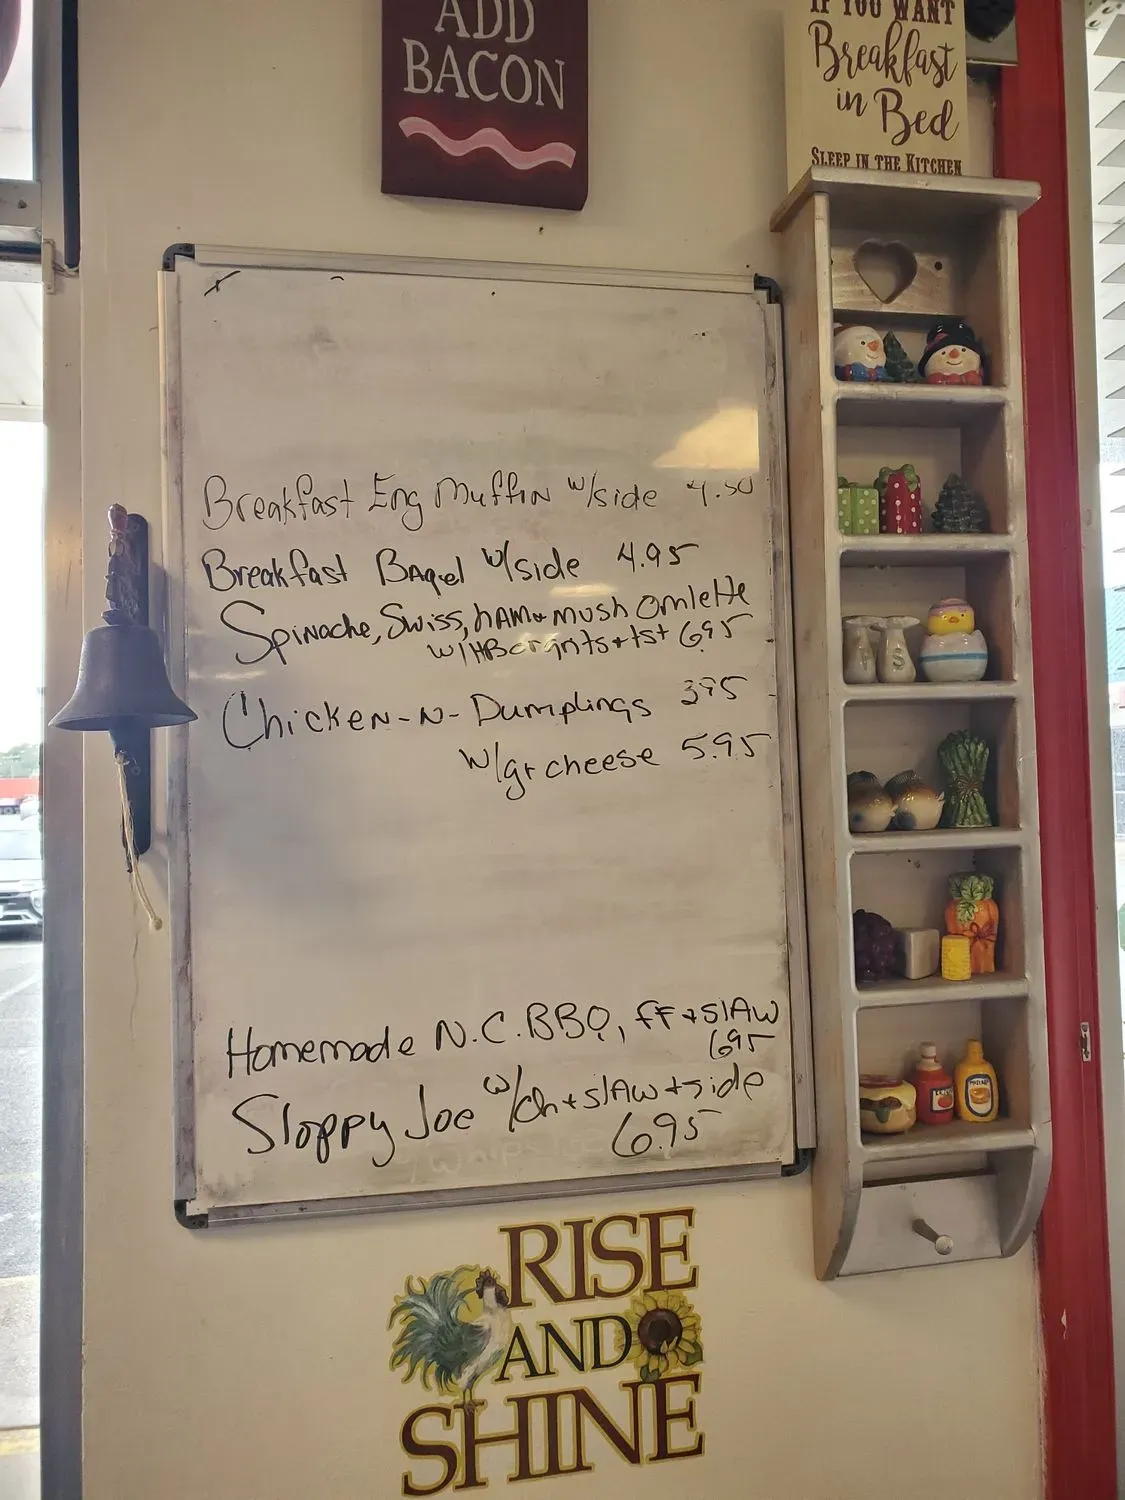 ADD
BACON
IF YOU WANT
Breakfast
in Bed
SLEEP IN THE KITCHEN
Breakfast Eng Muffin w/side 4.50
Breakfast Bagel w/side 4.95
Spinache, Swiss, hAM + mush Omlette
w/HB or grits + tst 6.95
Chicken-N-Dumplings 3.95
w/gr cheese 5.95
Homemade N.C. BBQ, ff + slAw
6.95
Sloppy Joe w/ch + slAw + side
6.95
RISE
AND
SHINE